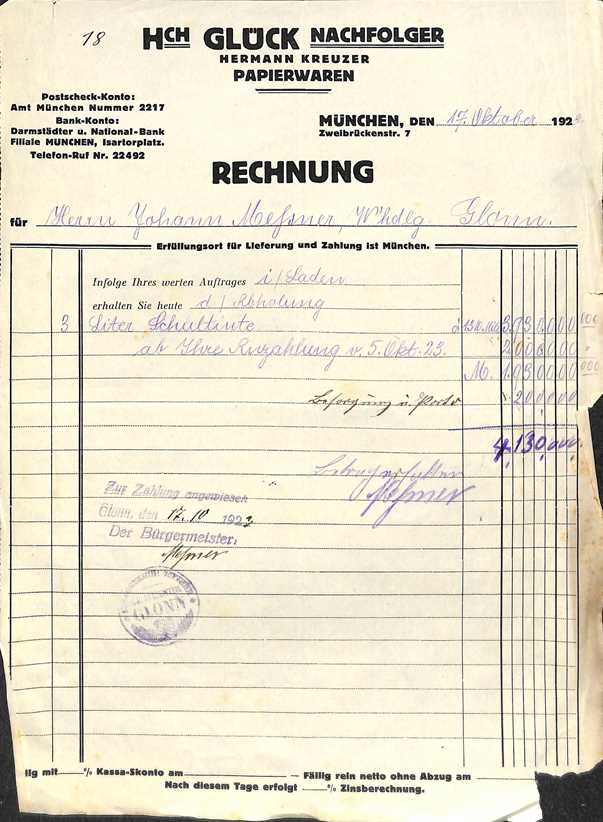 18
HCH GLÜCK NACHFOLGER
HERMANN KREUZER
PAPIERWAREN
Postscheck-Konto:
Amt München Nummer 2217
Bank-Konto:
Darmstädter u. National-Bank
Filiale MÜNCHEN, Isartorplatz.
Telefon-Ruf Nr. 22492
MÜNCHEN, DEN 17. Oktober 192
Zweibrückenstr. 7
RECHNUNG
für Herrn Johann Meßner, Whdlg. Glonn.
Erfüllungsort für Lieferung und Zahlung ist München.
Infolge Ihres werten Auftrages i/Laden
erhalten Sie heute d/Abholung
3 Liter Schultinte à 1310 3.930.000 000
ab Ihre Anzahlung v. 5. Okt. 23.
M. 000
Besorgung u. Porto 200000
4.130.000.
Betrag erhalten
Meßner
Zur Zahlung angewiesen
Glonn, den 17.10 1923
Der Bürgermeister:
Meßner
GLONN
lig mit % Kassa-Skonto am — Fällig rein netto ohne Abzug am
Nach diesem Tage erfolgt % Zinsberechnung.